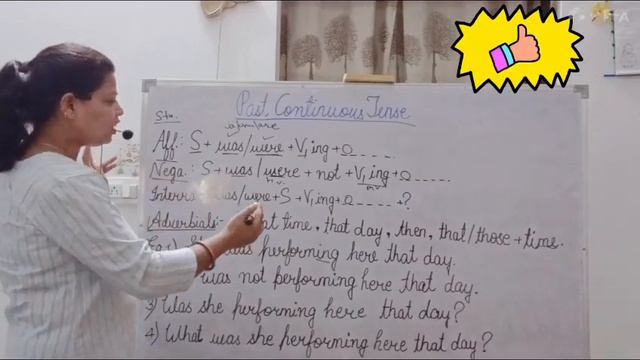 Stu.
Past Continuous Tense
Aff: S + was/were + V₁ ing + O ----.
Nega.: S + was/were + not + V₁ ing + O .....
Interro was/were + S + V₁ ing + O ---- + ?
Adverbials:- at time, that day, then, that/those + time.
performing here that day.
was not performing here that day.
3) Was she performing here that day?
4) What was she performing here that day?